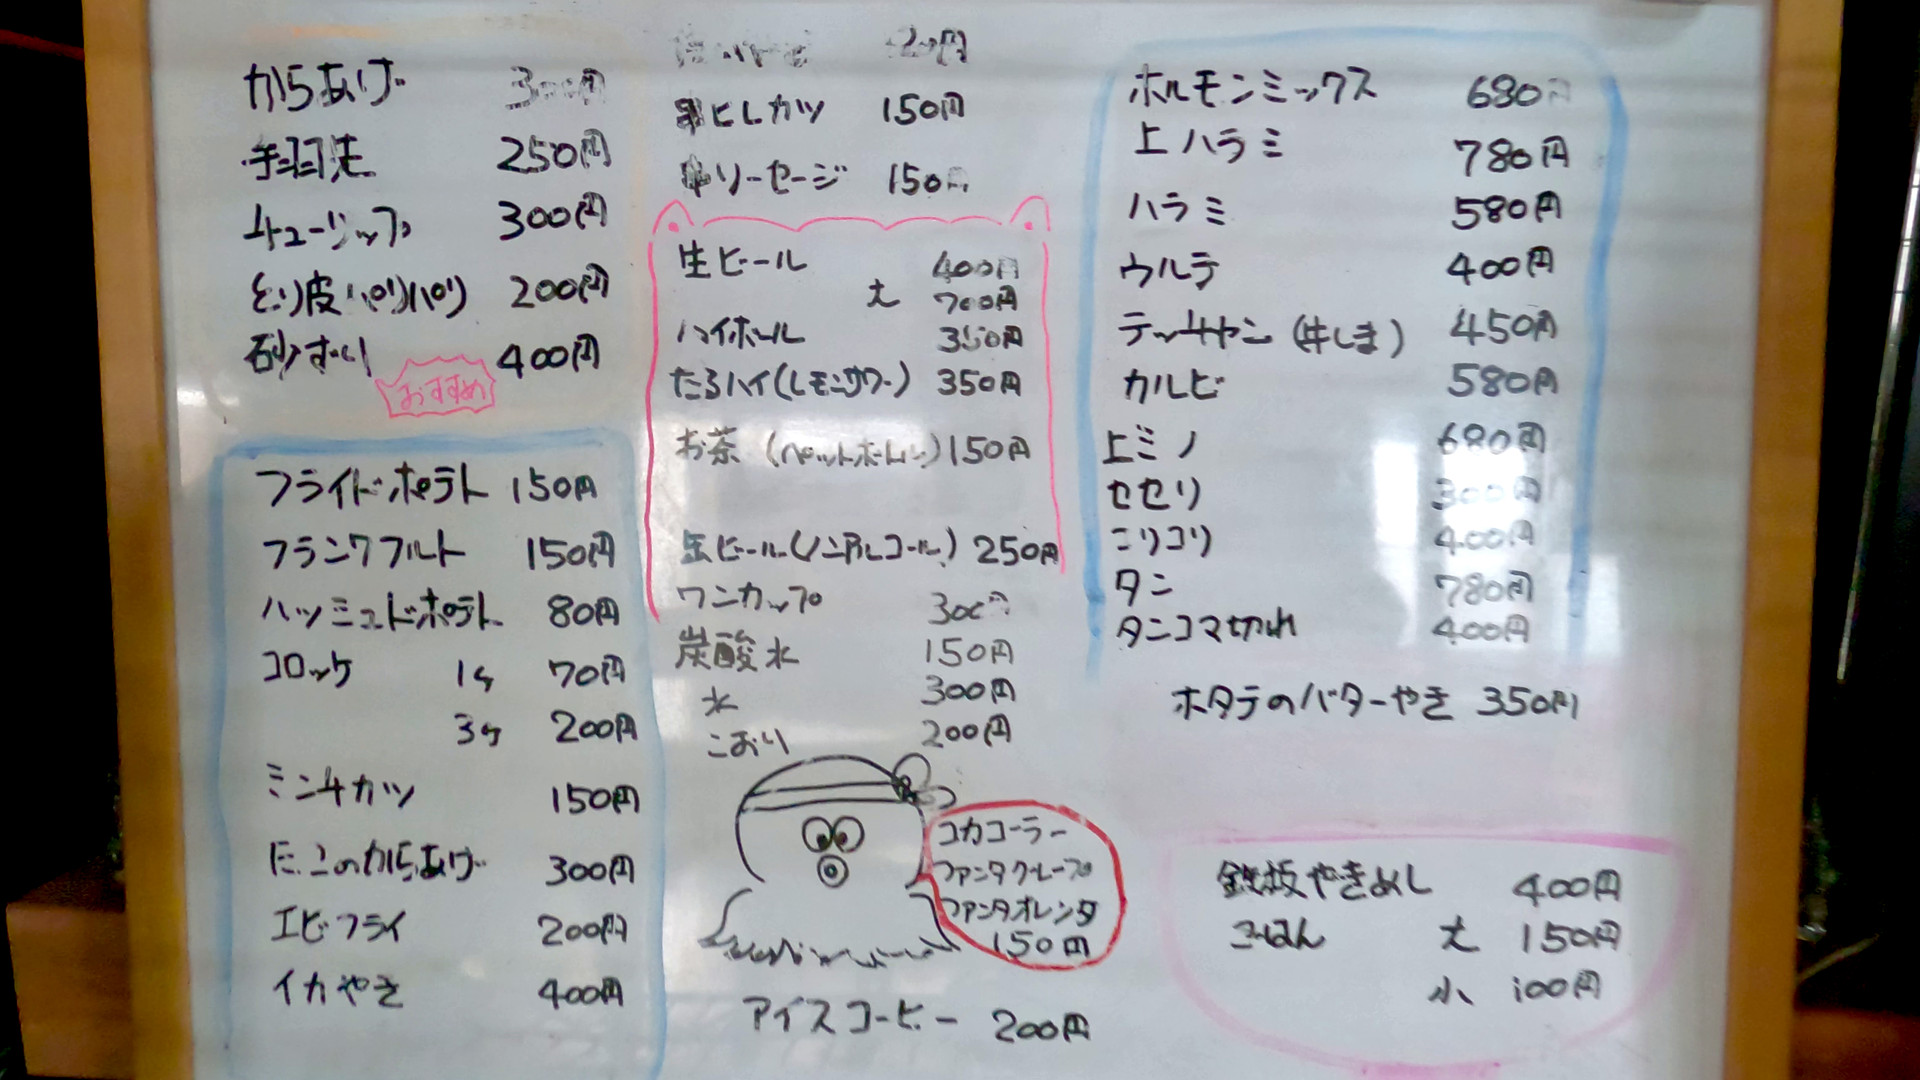 からあげ 300円
手羽先 250円
チューリップ 300円
とり皮パリパリ 200円
砂ずり 400円
おすすめ
フライドポテト 150円
フランクフルト 150円
ハッシュドポテト 80円
コロッケ 1ヶ 70円
3ヶ 200円
ミンチカツ 150円
たこのからあげ 300円
エビフライ 200円
イカやき 400円
串ヒレカツ 150円
串ソーセージ 150円
生ビール 400円
大 700円
ハイボール 350円
たるハイ(レモンサワー) 350円
お茶(ペットボトル) 150円
缶ビール(ノンアルコール) 250円
ワンカップ 300円
炭酸水 150円
水 300円
こおり 200円
コカコーラー
ファンタグレープ
ファンタオレンヂ
150円
アイスコーヒー 200円
ホルモンミックス 680円
上ハラミ 780円
ハラミ 580円
ウルテ 400円
テッチャン(牛しま) 450円
カルビ 580円
上ミノ 680円
セセリ 300円
コリコリ 400円
タン 780円
タンコマ切れ 400円
ホタテのバターやき 350円
鉄板やきめし 400円
ごはん 大 150円
小 100円